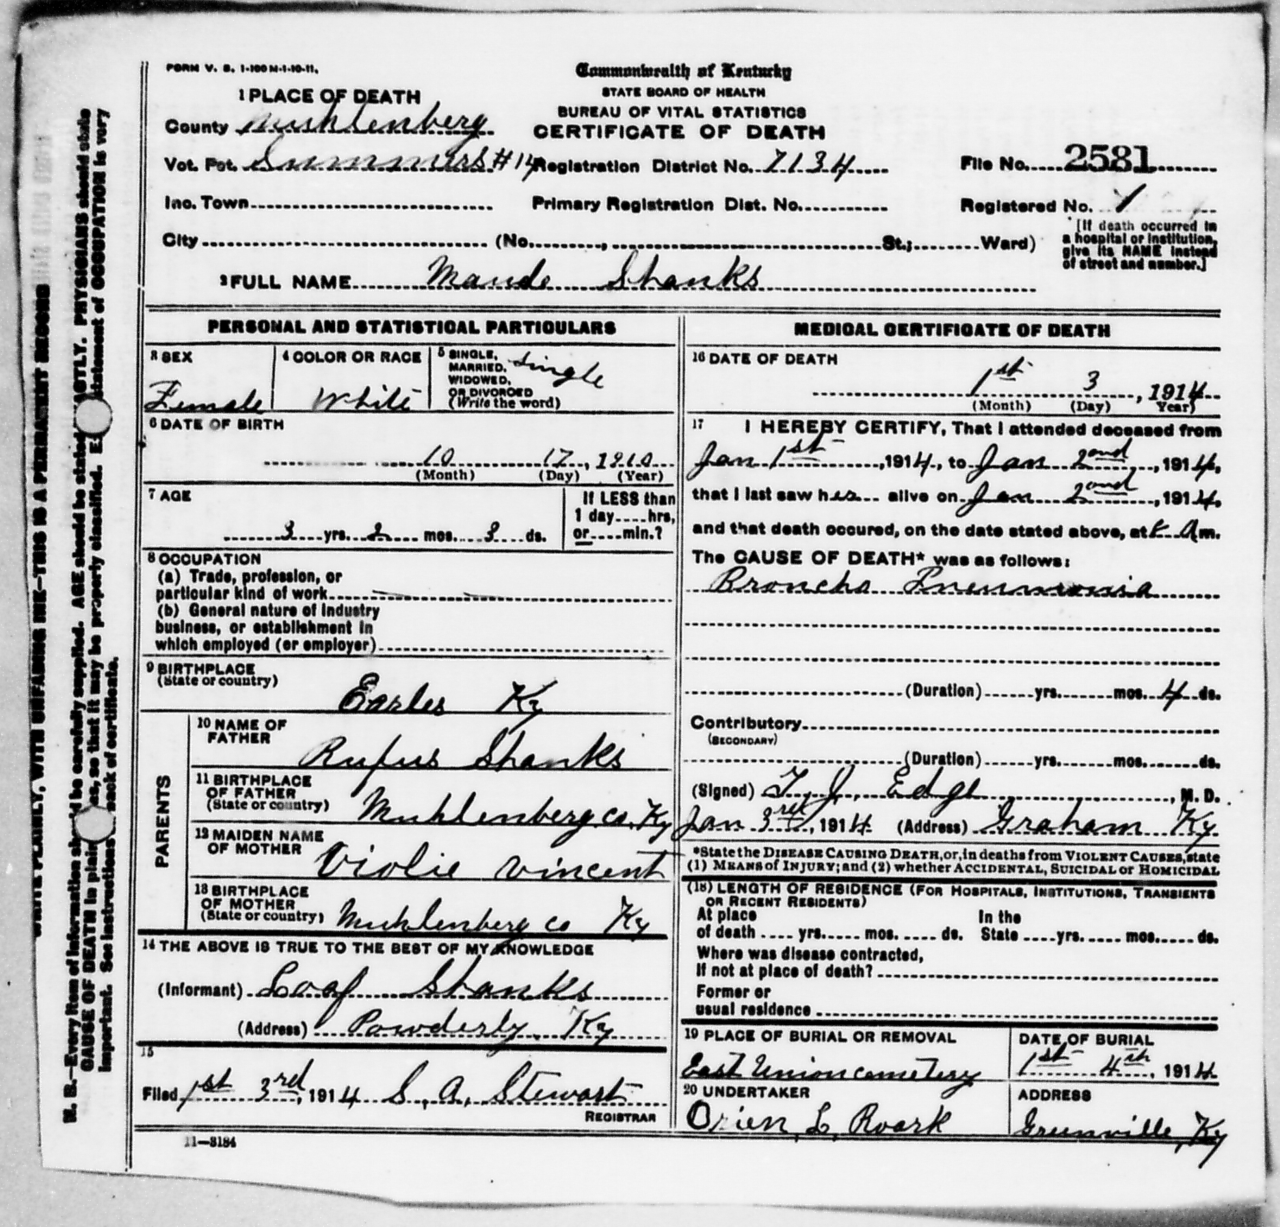 FORM V. S. 1-100M-1-10-11.
Commonwealth of Kentucky
STATE BOARD OF HEALTH
BUREAU OF VITAL STATISTICS
CERTIFICATE OF DEATH
1 PLACE OF DEATH
County Muhlenberg
Vot. Pct. Summers #14 Registration District No. 7134 File No. 2581
Inc. Town Primary Registration Dist. No. Registered No. 1
City (No. , St.; Ward)
[If death occurred in a hospital or institution, give its NAME instead of street and number.]
2 FULL NAME Maude Shanks
PERSONAL AND STATISTICAL PARTICULARS
3 SEX Female
4 COLOR OR RACE White
5 SINGLE, MARRIED, WIDOWED, OR DIVORCED (Write the word) Single
6 DATE OF BIRTH
10 17, 1910
(Month) (Day) (Year)
7 AGE
3 yrs. 2 mos. 3 ds.
If LESS than 1 day hrs, or min.?
8 OCCUPATION
(a) Trade, profession, or
particular kind of work
(b) General nature of Industry
business, or establishment in
which employed (or employer)
9 BIRTHPLACE
(State or country)
Earles Ky
PARENTS
10 NAME OF FATHER
Rufus Shanks
11 BIRTHPLACE OF FATHER (State or country)
Muhlenberg co. Ky
12 MAIDEN NAME OF MOTHER
Violie Vincent
13 BIRTHPLACE OF MOTHER (State or country)
Muhlenberg co Ky
14 THE ABOVE IS TRUE TO THE BEST OF MY KNOWLEDGE
(Informant) Loaf Shanks
(Address) Powderly Ky
15
Filed 1st 3rd, 1914 S. A. Stewart
REGISTRAR
11—3184
MEDICAL CERTIFICATE OF DEATH
16 DATE OF DEATH
1st 3, 1914
(Month) (Day) (Year)
17 I HEREBY CERTIFY, That I attended deceased from
Jan 1st, 1914, to Jan 2nd, 1914,
that I last saw her alive on Jan 2nd, 1914,
and that death occured, on the date stated above, at Am.
The CAUSE OF DEATH* was as follows:
Broncho Pneumonia
(Duration) yrs. mos. 4 ds.
Contributory
(SECONDARY)
(Duration) yrs. mos. ds.
(Signed) T. J. Edge, M. D.
Jan 3rd, 1914 (Address) Graham Ky
*State the DISEASE CAUSING DEATH, or, in deaths from VIOLENT CAUSES, state
(1) MEANS OF INJURY; and (2) whether ACCIDENTAL, SUICIDAL or HOMICIDAL
(18) LENGTH OF RESIDENCE (FOR HOSPITALS, INSTITUTIONS, TRANSIENTS
OR RECENT RESIDENTS)
At place In the
of death yrs. mos. ds. State yrs. mos. ds.
Where was disease contracted,
If not at place of death?
Former or
usual residence
19 PLACE OF BURIAL OR REMOVAL
East Union cemetery
DATE OF BURIAL
1st 4th, 1914
20 UNDERTAKER
Orien L. Roark
ADDRESS
Greenville, Ky
WRITE PLAINLY, WITH UNFADING INK—THIS IS A PERMANENT RECORD
N. B.—Every item of information should be carefully supplied. AGE should be stated EXACTLY. PHYSICIANS should state
CAUSE OF DEATH in plain terms, so that it may be properly classified. Exact statement of OCCUPATION is very
important. See instructions on back of certificate.